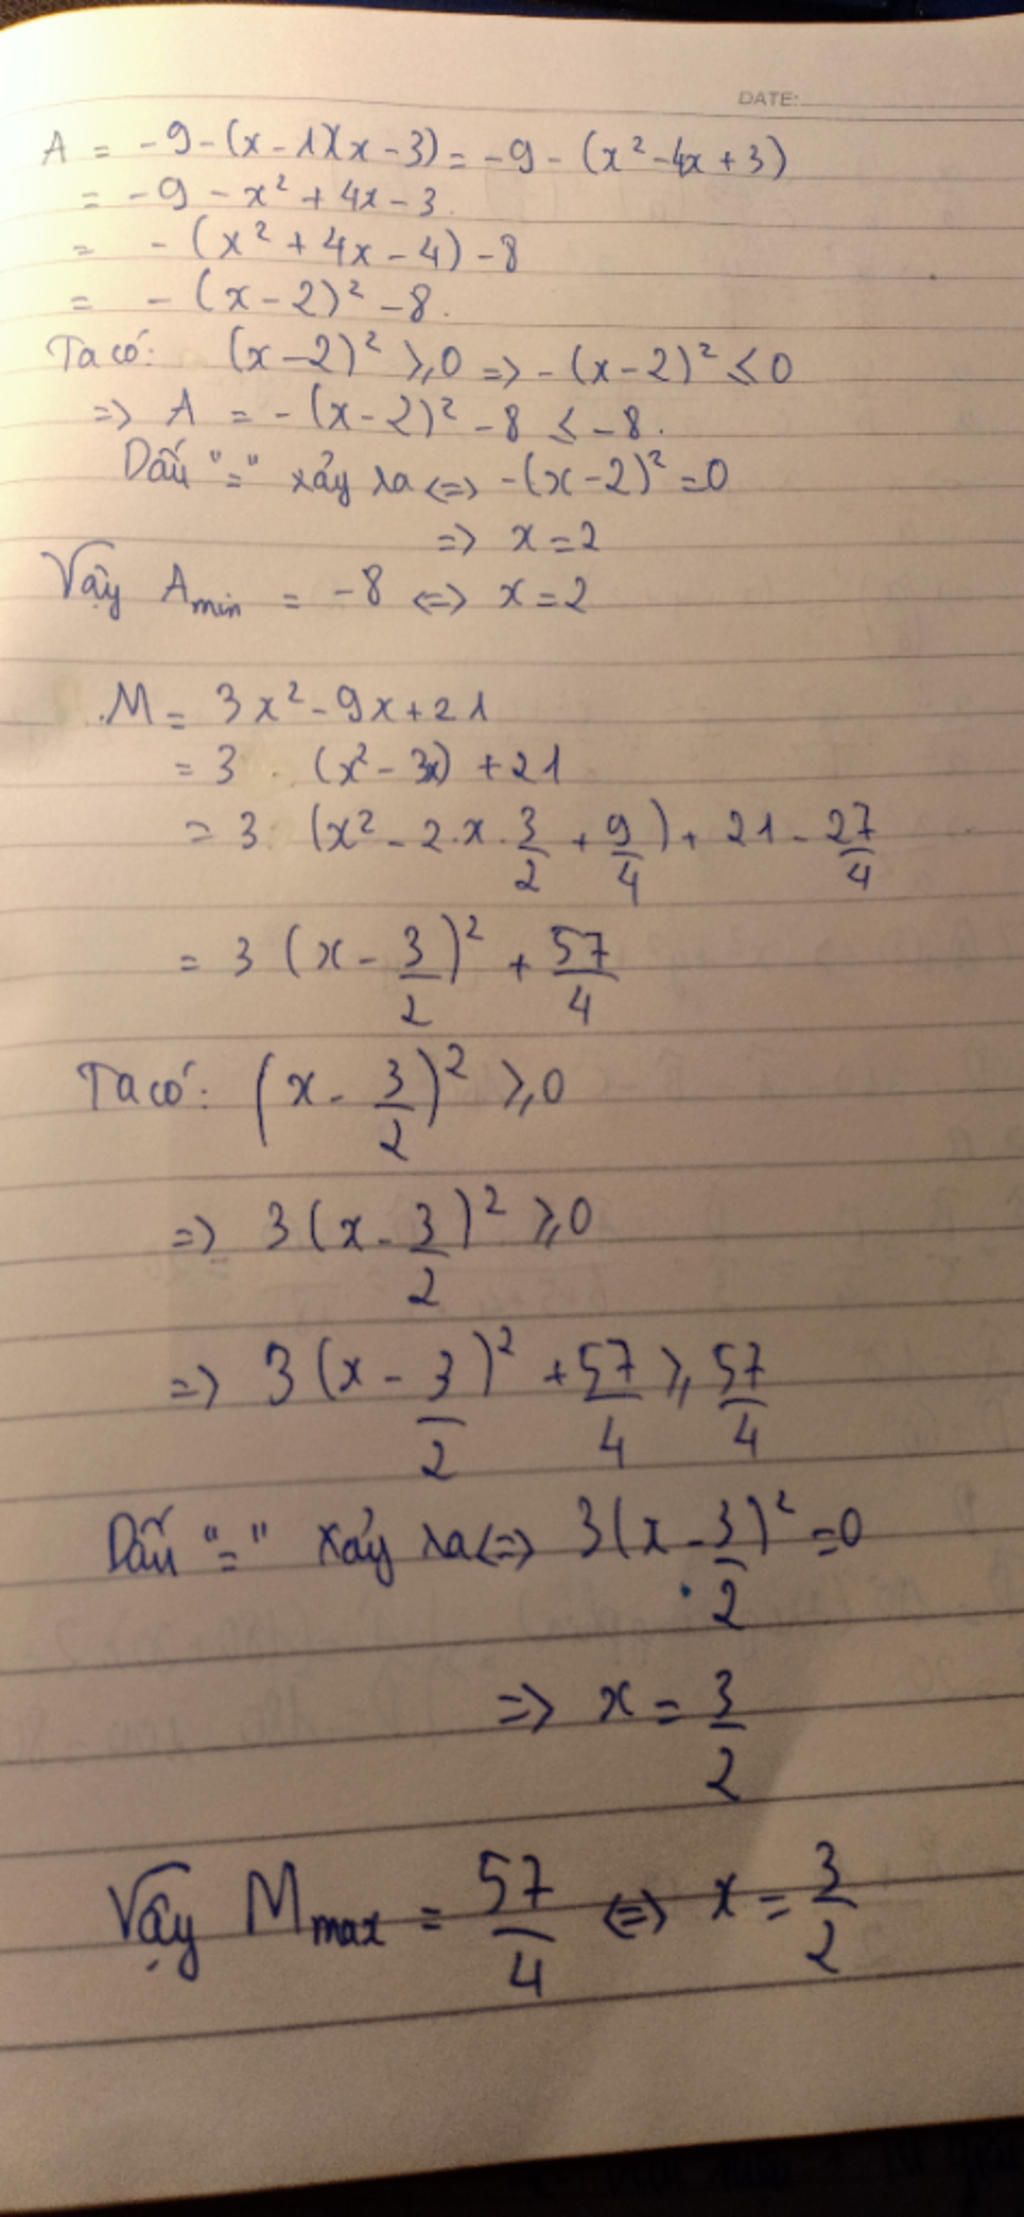 DATE:
A = -9-(x-1)(x-3) = -9-(x²-4x+3)
= -9-x²+4x-3.
= -(x²+4x-4)-8
= -(x-2)²-8.
Ta có: (x-2)² ≥0 => -(x-2)² ≤0
=> A = -(x-2)²-8 ≤ -8.
Dấu "=" xảy ra <=> -(x-2)²=0
=> x=2
Vậy Amin = -8 <=> x=2
M = 3x²-9x+21
= 3 (x²-3x)+21
= 3 (x²-2.x.3/2+9/4)+21-27/4
= 3(x-3/2)²+57/4
Ta có: (x-3/2)² ≥0
=> 3(x-3/2)² ≥0
=> 3(x-3/2)²+57/4 ≥ 57/4
Dấu "=" xảy ra <=> 3(x-3/2)²=0
=> x=3/2
Vậy Mmax = 57/4 <=> x=3/2